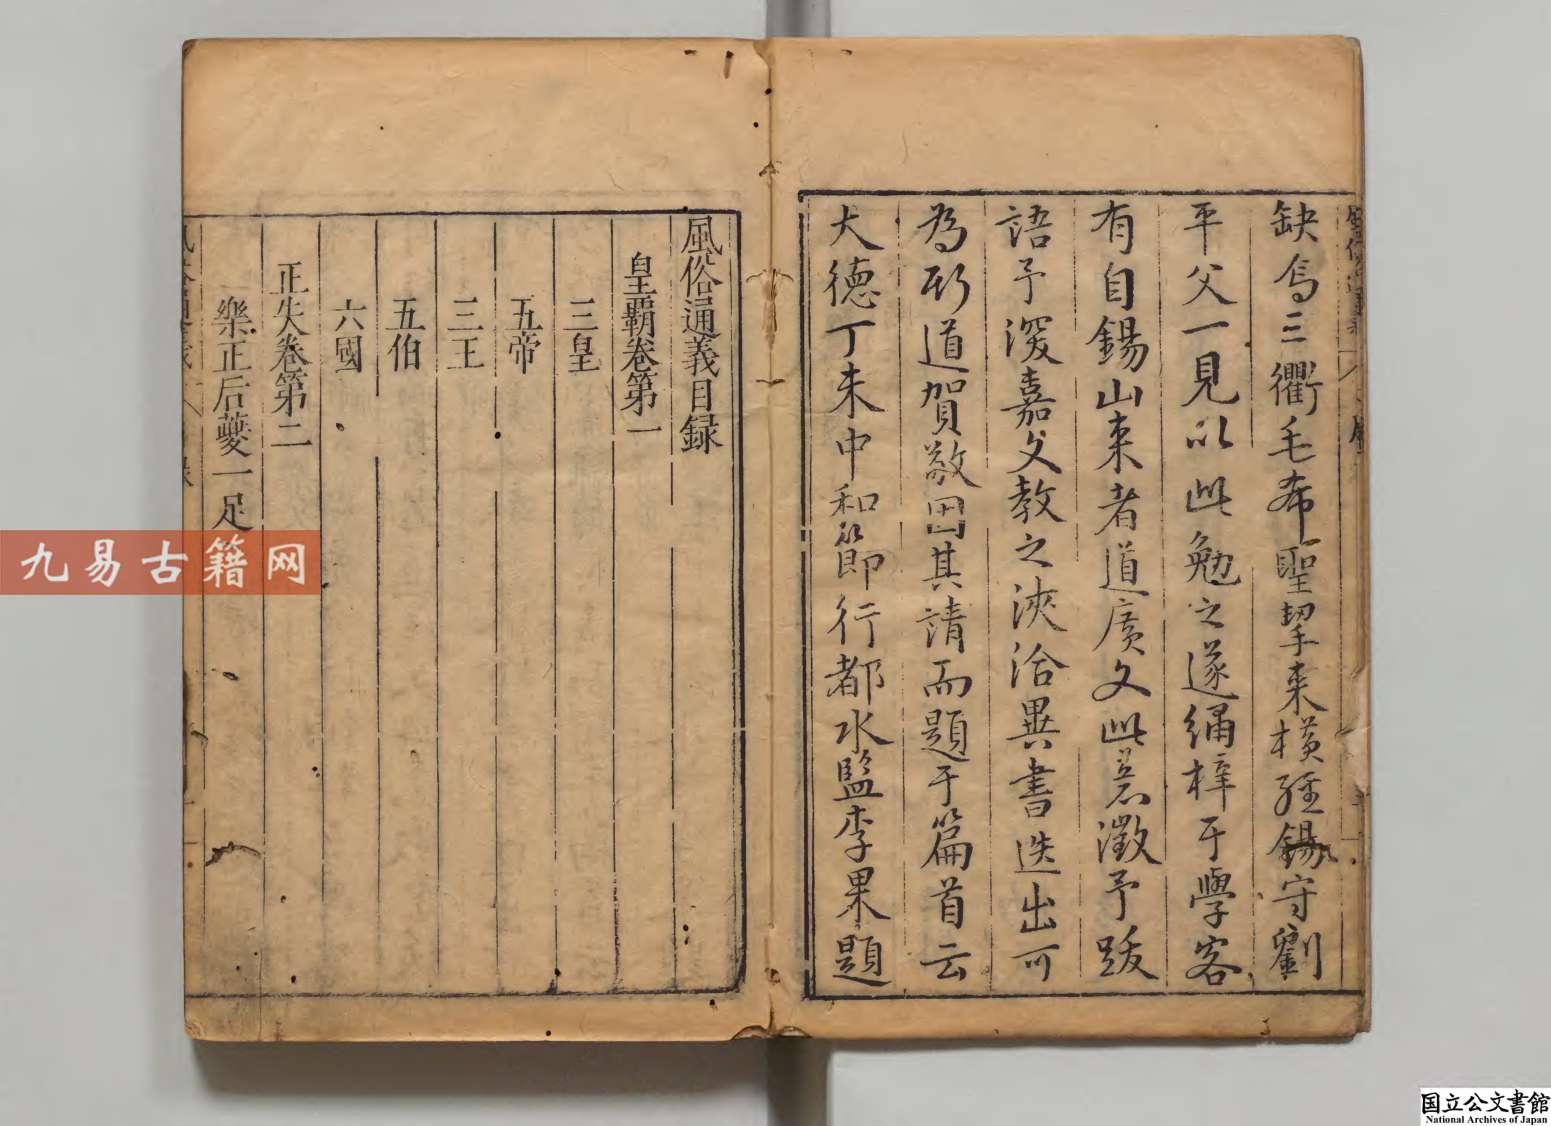 缺焉三衢毛希聖挈來橫經錫守劉
平父一見以此勉之遂繡梓于學客
有自錫山来者道廣文此意徵予跋
語予深嘉父教之浹洽異書迭出可
為斯道賀敬因其請而題于篇首云
大德丁未中和節行都水監李果題
風俗通義目録
皇霸卷第一
三皇
五帝
三王
五伯
六國
正失卷第二
樂正后夔一足
九易古籍网
国立公文書館
National Archives of Japan